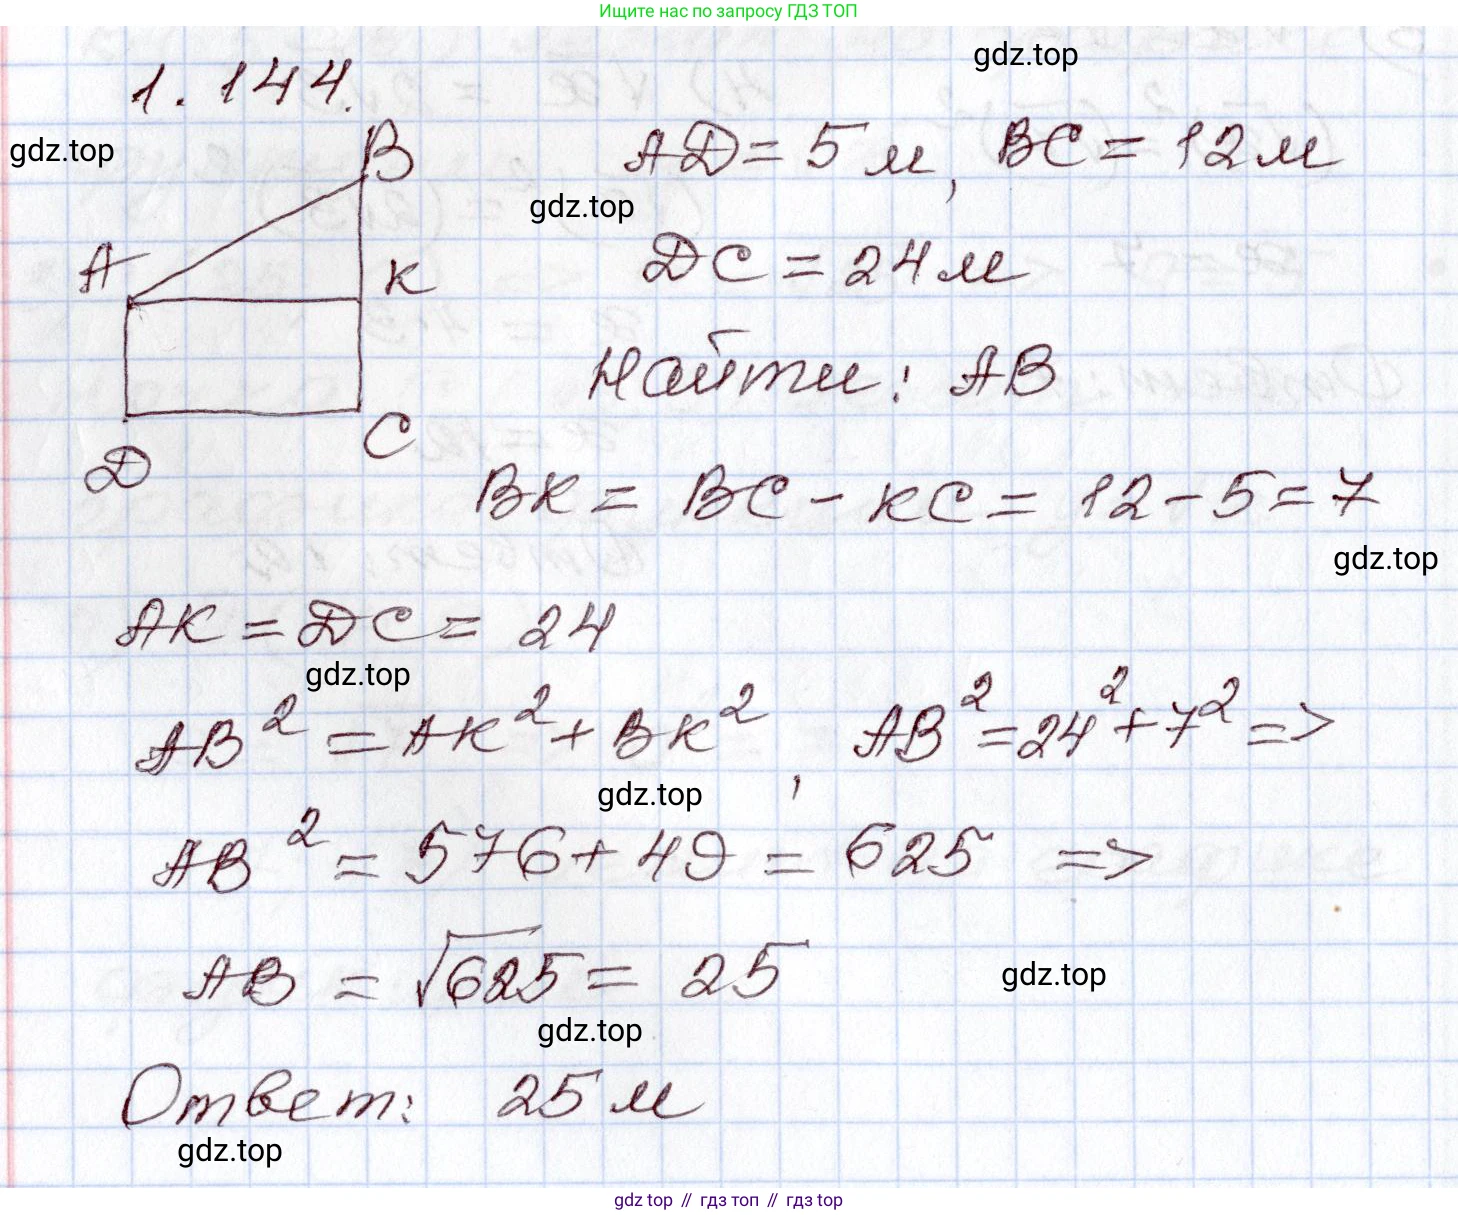 Ищите нас по запросу ГДЗ ТОП
gdz.top
1.144.
gdz.top
B
AD = 5 м, BC = 12 м
gdz.top
A
K
DC = 24 м
Найти: AB
C
D
BK = BC - KC = 12 - 5 = 7
gdz.top
AK = DC = 24
gdz.top
AB² = AK² + BK², AB² = 24² + 7² =>
gdz.top
AB² = 576 + 49 = 625 =>
AB = √625 = 25
gdz.top
gdz.top
Ответ: 25 м
gdz.top
gdz top // гдз топ // гдз top